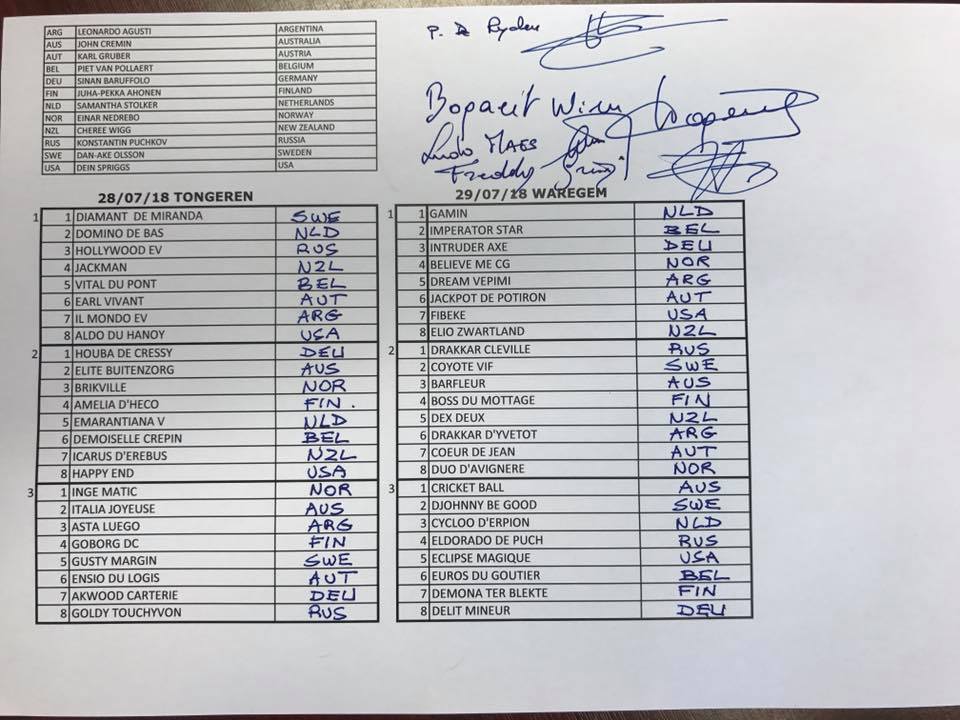 ARG LEONARDO AGUSTI ARGENTINA
AUS JOHN CREMIN AUSTRALIA
AUT KARL GRUBER AUSTRIA
BEL PIET VAN POLLAERT BELGIUM
DEU SINAN BARUFFOLO GERMANY
FIN JUHA-PEKKA AHONEN FINLAND
NLD SAMANTHA STOLKER NETHERLANDS
NOR EINAR NEDREBO NORWAY
NZL CHEREE WIGG NEW ZEALAND
RUS KONSTANTIN PUCHKOV RUSSIA
SWE DAN-AKE OLSSON SWEDEN
USA DEIN SPRIGGS USA
P. De
Bogaert Wim
Ludo MAES
Freddy
28/07/18 TONGEREN
1 1 DIAMANT DE MIRANDA SWE
2 DOMINO DE BAS NLD
3 HOLLYWOOD EV RUS
4 JACKMAN NZL
5 VITAL DU PONT BEL
6 EARL VIVANT AUT
7 IL MONDO EV ARG
8 ALDO DU HANOY USA
2 1 HOUBA DE CRESSY DEU
2 ELITE BUITENZORG AUS
3 BRIKVILLE NOR
4 AMELIA D'HECO FIN.
5 EMARANTIANA V NLD
6 DEMOISELLE CREPIN BEL
7 ICARUS D'EREBUS NZL
8 HAPPY END USA
3 1 INGE MATIC NOR
2 ITALIA JOYEUSE AUS
3 ASTA LUEGO ARG
4 GOBORG DC FIN
5 GUSTY MARGIN SWE
6 ENSIO DU LOGIS AUT
7 AKWOOD CARTERIE DEU
8 GOLDY TOUCHYVON RUS
29/07/18 WAREGEM
1 1 GAMIN NLD
2 IMPERATOR STAR BEL
3 INTRUDER AXE DEU
4 BELIEVE ME CG NOR
5 DREAM VEPIMI ARG
6 JACKPOT DE POTIRON AUT
7 FIBEKE USA
8 ELIO ZWARTLAND NZL
2 1 DRAKKAR CLEVILLE RUS
2 COYOTE VIF SWE
3 BARFLEUR AUS
4 BOSS DU MOTTAGE FIN
5 DEX DEUX NZL
6 DRAKKAR D'YVETOT ARG
7 COEUR DE JEAN AUT
8 DUO D'AVIGNERE NOR
3 1 CRICKET BALL AUS
2 DJOHNNY BE GOOD SWE
3 CYCLOO D'ERPION NLD
4 ELDORADO DE PUCH RUS
5 ECLIPSE MAGIQUE USA
6 EUROS DU GOUTIER BEL
7 DEMONA TER BLEKTE FIN
8 DELIT MINEUR DEU